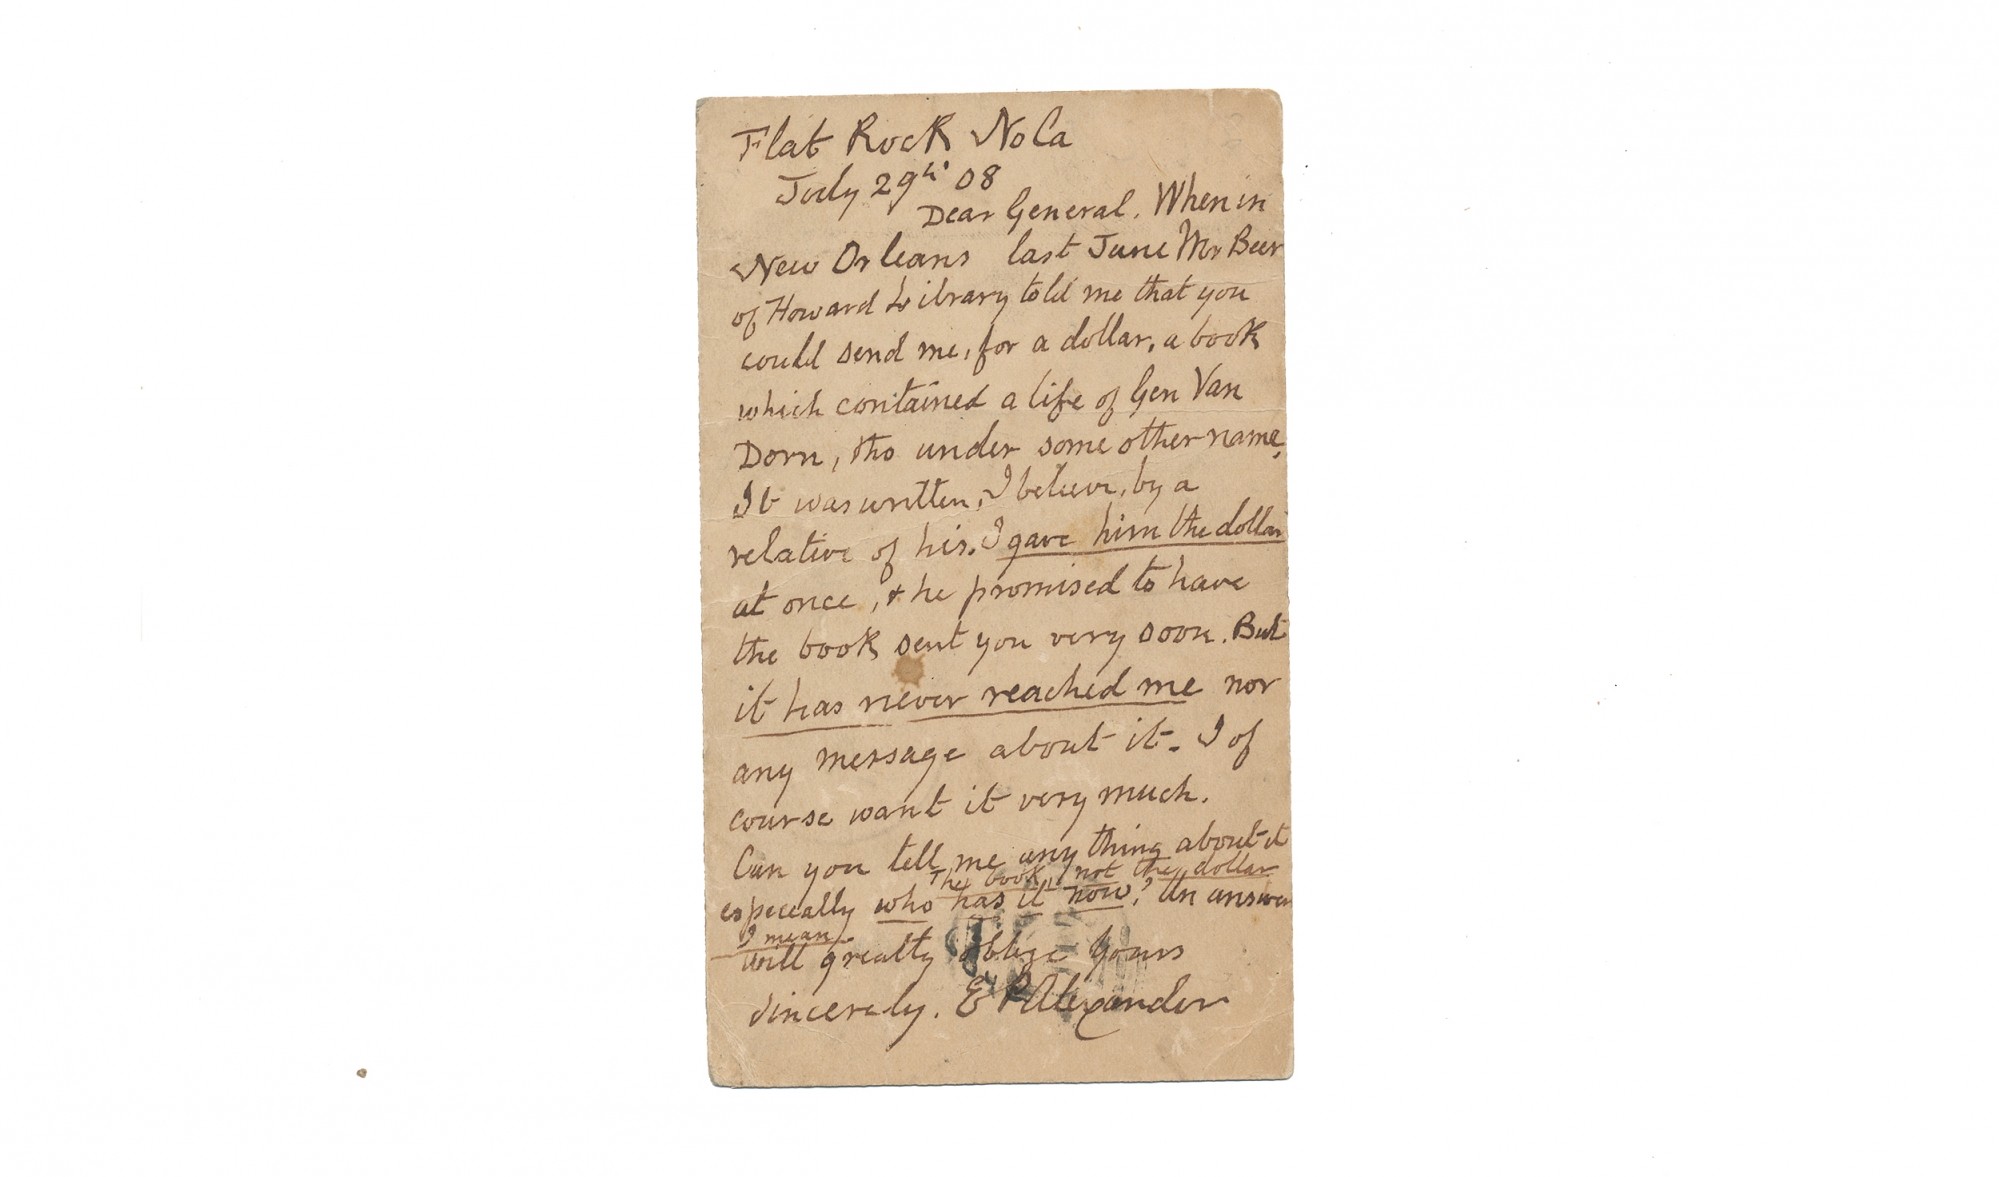 Flat Rock No Ca
July 29th 08
Dear General. When in
New Orleans last June Mr Beer
of Howard Library told me that you
could send me, for a dollar, a book
which contained a life of Gen Van
Dorn, tho under some other name.
It was written, I believe, by a
relative of his. I gave him the dollar
at once, & he promised to have
the book sent you very soon. But
it has never reached me nor
any message about it. I of
course want it very much.
Can you tell me any thing about it
The book not the dollar
especially who has it now? An answer
I mean
will greatly oblige Yours
sincerely. E P Alexander